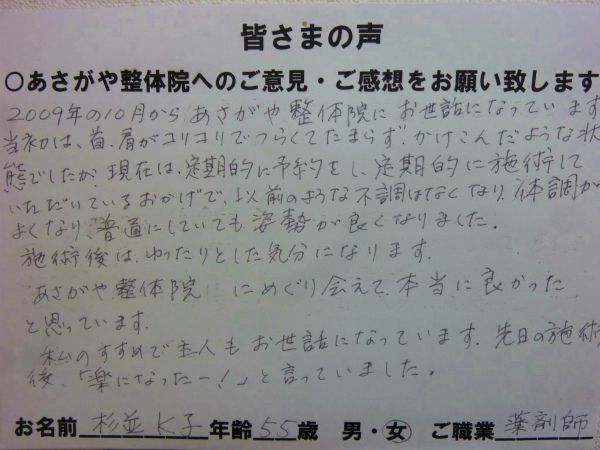 皆さまの声
○あさがや整体院へのご意見・ご感想をお願い致します
2009年の10月からあさがや整体院にお世話になっています
当初は、首、肩がコリコリでつらくてたまらず、かけこんだような状
態でしたが、現在は、定期的に予約をし、定期的に施術して
いただいているおかげで、以前のような不調はなくなり、体調が
よくなり、普通にしていても姿勢が良くなりました。
施術後は、ゆったりとした気分になります。
あさがや整体院にめぐり会えて、本当に良かった
と思っています。
私のすすめで主人もお世話になっています。先日の施術
後、「楽になったー!」と言っていました。
お名前 杉並K子 年齢 55 歳 男・女 ご職業 薬剤師